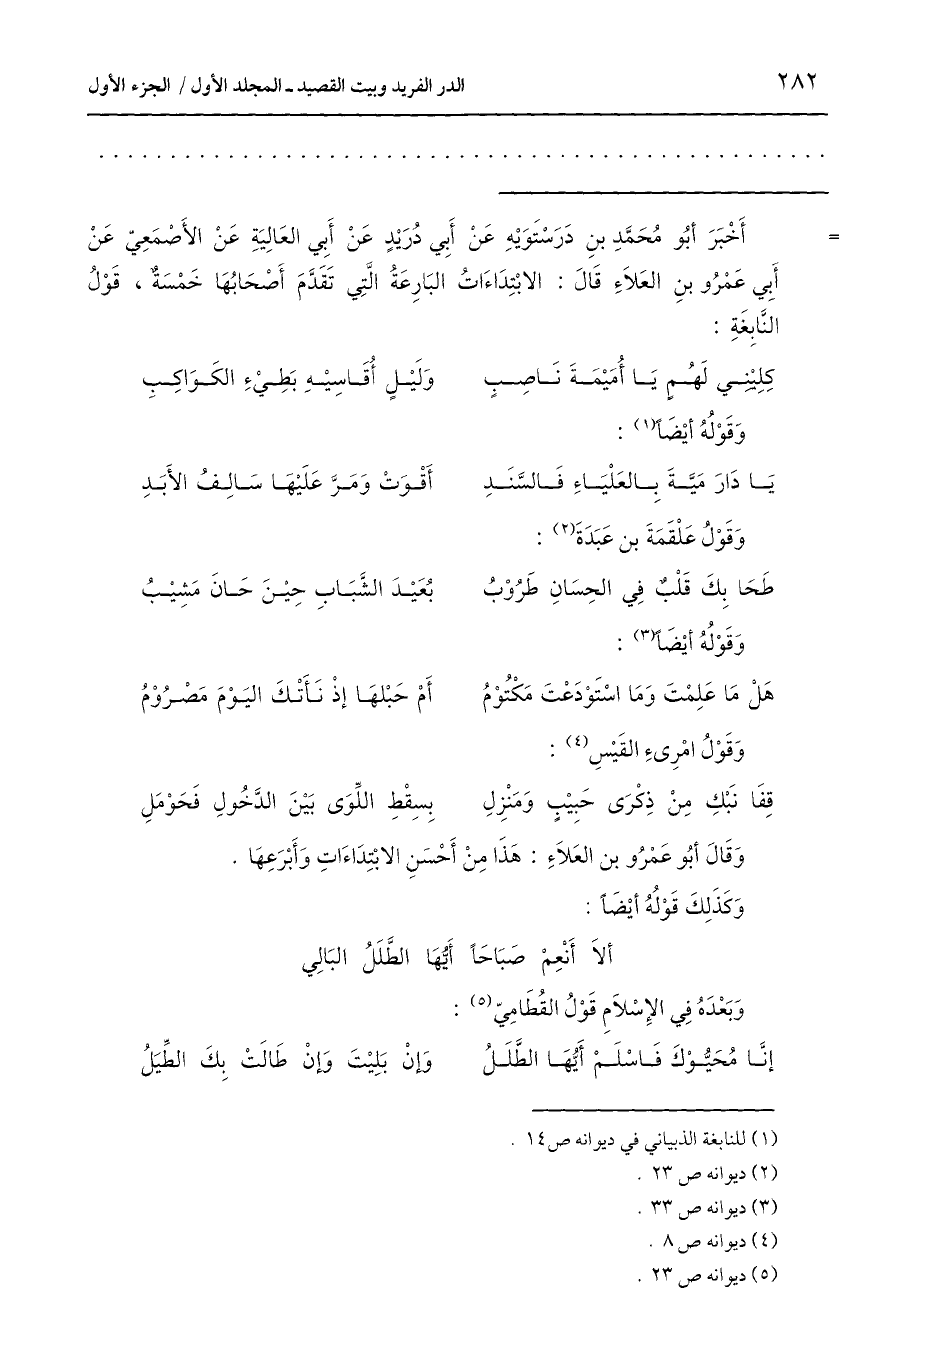 ٢٨٢ الدر الفريد وبيت القصيد ـ المجلد الأول / الجزء الأول
. . . . . . . . . . . . . . . . . . . . . . . . . . . . . . . . . . . . . . . . . . . . . . . . . . .
= أَخْبَرَ أبُو مُحَمَّدِ بنِ دَرَسْتَوَيْهِ عَنْ أَبِي دُرَيْدٍ عَنْ أَبِي العَالِيَةِ عَنْ الأَصْمَعِيّ عَنْ
أَبِي عَمْرُو بنِ العَلاَءِ قَالَ : الابْتِدَاءَاتُ البَارِعَةُ الَّتِي تَقَدَّمَ أَصْحَابُهَا خَمْسَةٌ ، قَوْلُ
النَّابِغَةِ :
كِلِيْنِي لَهُمٍ يَا أُمَيْمَةَ نَاصِبِ وَلَيْلٍ أُقَاسِيْهِ بَطِيْءِ الكَوَاكِبِ
وَقَوْلُهُ أيْضَاً(١) :
يَا دَارَ مَيَّةَ بِالعَلْيَاءِ فَالسَّنَدِ أَقْوَتْ وَمَرَّ عَلَيْهَا سَالِفُ الأَبَدِ
وَقَوْلُ عَلْقَمَةَ بن عَبَدَةَ(٢) :
طَحَا بِكَ قَلْبٌ فِي الحِسَانِ طَرُوْبُ بُعَيْدَ الشَّبَابِ حِيْنَ حَانَ مَشِيْبُ
وَقَوْلُهُ أيْضَاً(٣) :
هَلْ مَا عَلِمْتَ وَمَا اسْتَوْدَعْتَ مَكْتُوْمُ أَمْ حَبْلهَا إذْ نَأَتْكَ اليَوْمَ مَصْرُوْمُ
وَقَوْلُ امْرِىءِ القَيْسِ(٤) :
قِفَا نَبْكِ مِنْ ذِكْرَى حَبِيْبٍ وَمَنْزِلِ بِسِقْطِ اللِّوَى بَيْنَ الدَّخُولِ فَحَوْمَلِ
وَقَالَ أبُو عَمْرُو بن العَلاَءِ : هَذَا مِنْ أَحْسَنِ الابْتِدَاءَاتِ وَأَبْرَعِهَا .
وَكَذَلِكَ قَوْلُهُ أيْضَاً :
ألاَ أَنْعِمْ صَبَاحَاً أَيُّهَا الطَّلَلُ البَالِي
وَبَعْدَهُ فِي الإِسْلاَمِ قَوْلُ القُطَامِيّ(٥) :
إنَّا مُحَيُّوْكَ فَاسْلَمْ أَيُّهَا الطَّلَلُ وَإنْ بَلِيْتَ وَإنْ طَالَتْ بِكَ الطِّيَلُ
(١) للنابغة الذبياني في ديوانه ص١٤ .
(٢) ديوانه ص ٢٣ .
(٣) ديوانه ص ٣٣ .
(٤) ديوانه ص ٨ .
(٥) ديوانه ص ٢٣ .